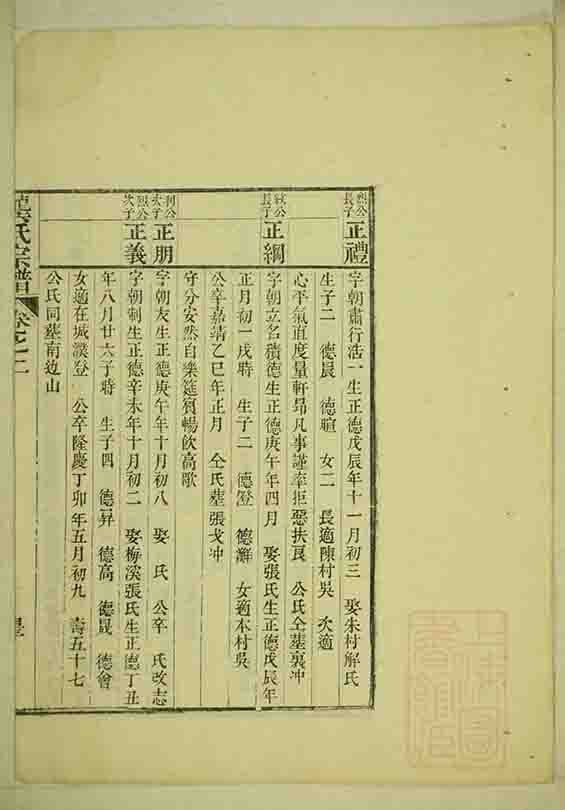 烈公長子 正禮
字朝肅行浩一生正德戊辰年十一月初三 娶朱村解氏
生子二 德晟 德暄 女二 長適陳村吳 次適
心平氣直度量軒昂凡事謹率拒惡扶良 公氏仝墓裏冲
公長子 正綱
字朝立名積德生正德庚午年四月 娶張氏生正德戊辰年
正月初一戌時 生子二 德澄 德瀚 女適本村吳
公卒嘉靖乙巳年正月 仝氏墓張戈冲
守分安然自樂筵賓暢飲高歌
公次子 正朋
字朝友生正德庚午年十月初八 娶 氏 公卒 氏改志
烈公次子 正義
字朝制生正德辛未年十月初二 娶梅溪張氏生正德丁丑
年八月廿六子時 生子四 德昇 德高 德晟 德會
女適在城濮登 公卒隆慶丁卯年五月初九 壽五十七
公氏同墓南边山
氏宗譜 卷之二
上海圖書館藏